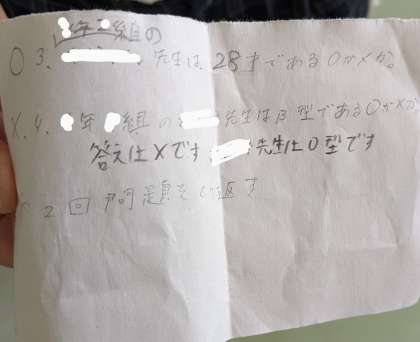 年 組の
○ 3、先生は、28才である○か×か。
×、4、年 組の 先生はB型である○か×か
答えは×です 先生はO型です
2回問題をくり返す